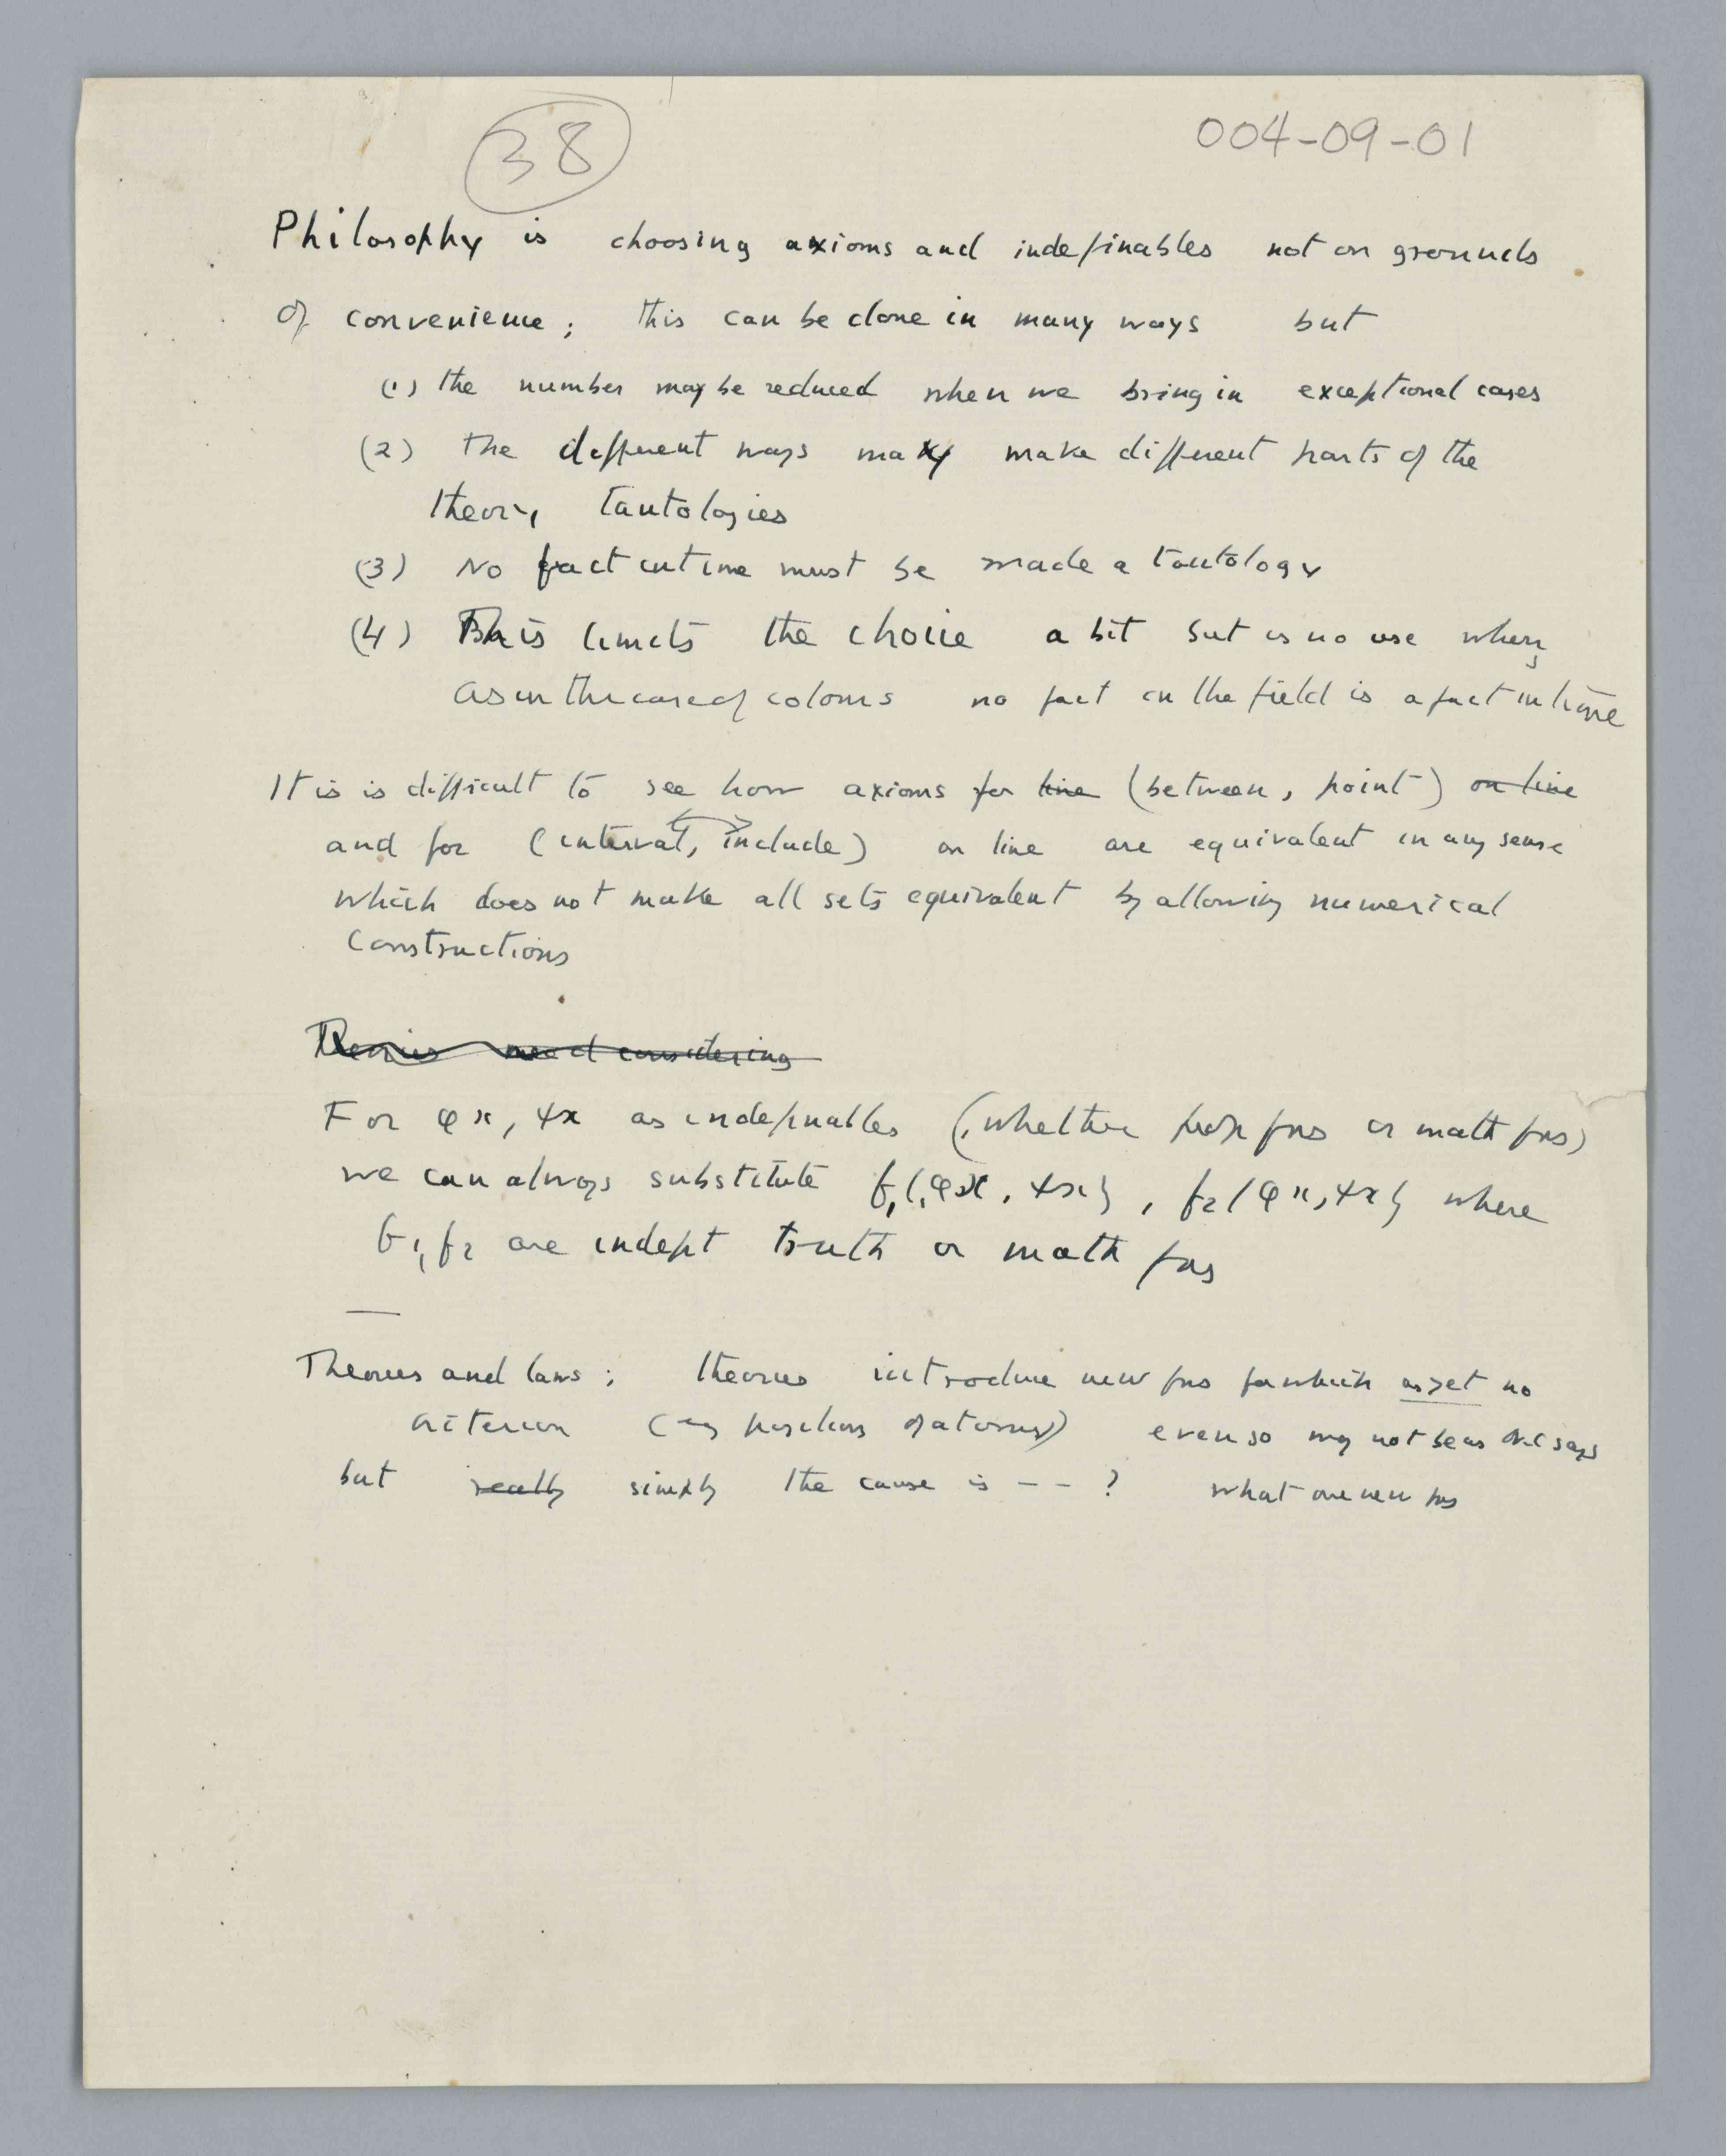 38
004-09-01
Philosophy is choosing axioms and indefinables not on grounds
of convenience; this can be done in many ways but
(1) the number may be reduced when we bring in exceptional cases
(2) The different ways may make different parts of the
theory tautologies
(3) No fact in time must be made a tautology
(4) This limits the choice a bit but is no use when,
as in the case of colours no fact in the field is a fact in time
It is is difficult to see how axioms for line (between, point) on line
and for (interval, include) on line are equivalent in any sense
which does not make all sets equivalent by allowing numerical
constructions
Theories need considering
For φx, ψx as indefinables (whether prop fns or math fns)
we can always substitute f1{φx, ψx}, f2{φx, ψx} where
f1, f2 are indept truth or math fns
Theories and laws; theories introduce new fns for which as yet no
criterion (eg positions of atoms) even so may not be as says
but really simply the cause is -- ? what are new fns